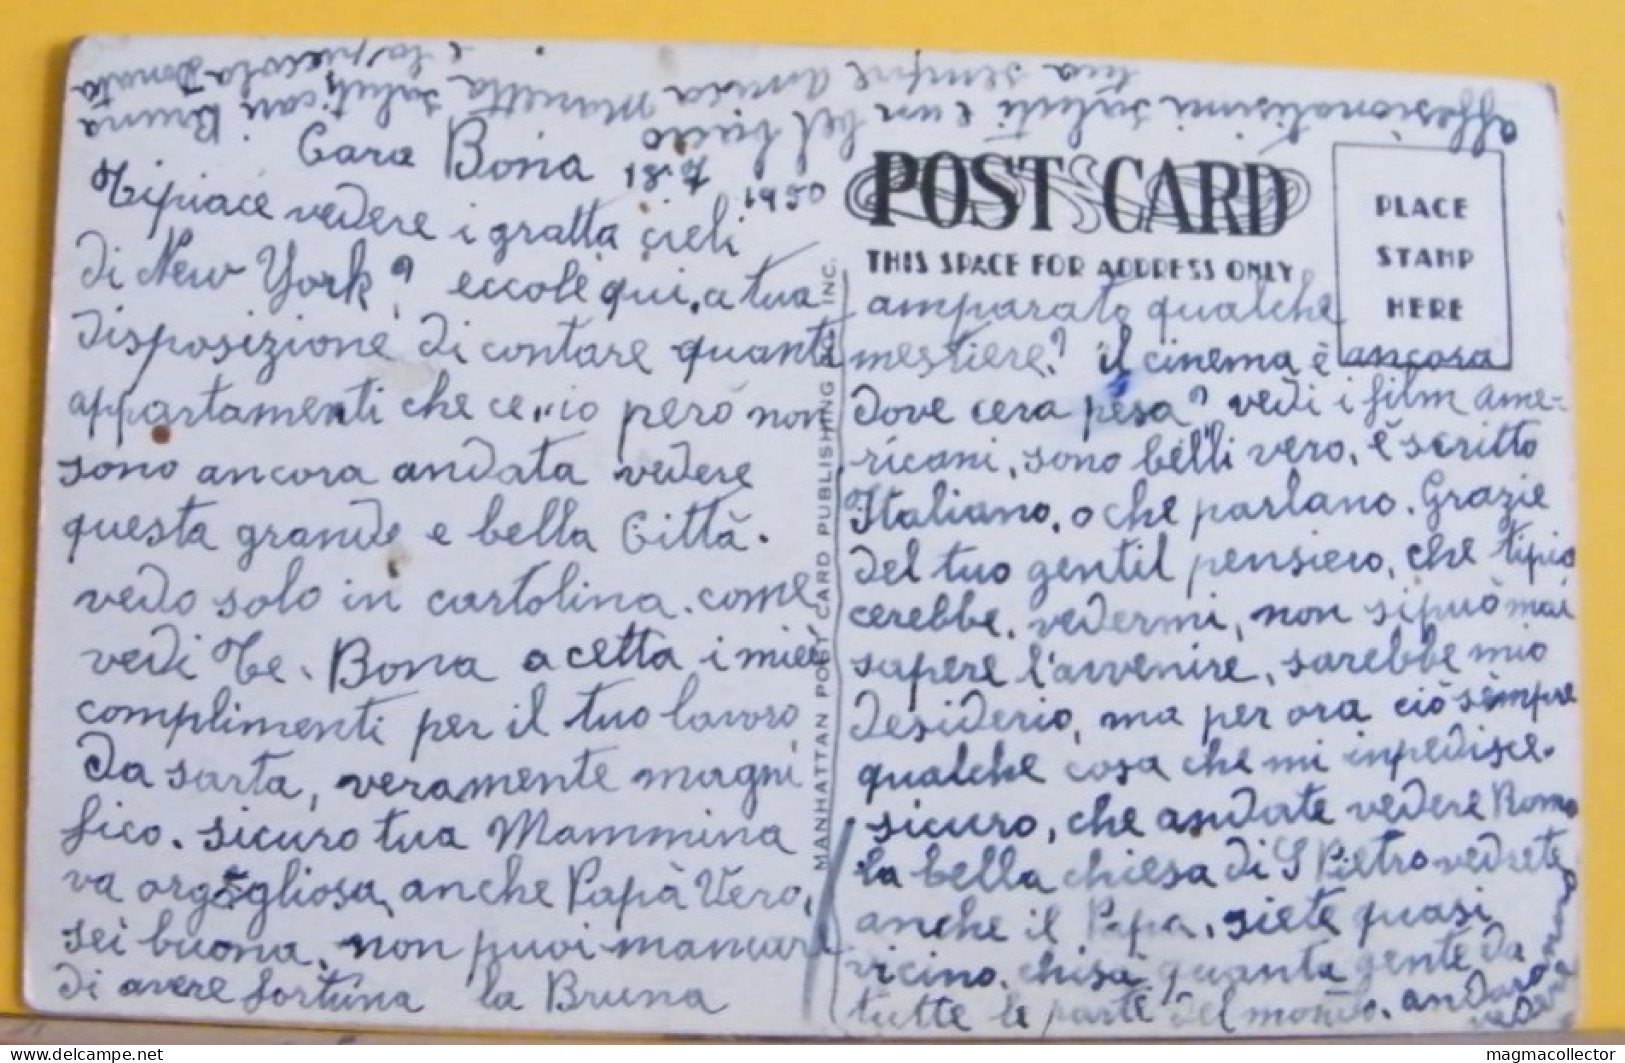 Cara Bona
1950
Ti piace vedere i gratta cieli
di New York? eccole qui, a tua
disposizione di contare quanti
appartamenti che ce, io però non
sono ancora andata vedere
questa grande e bella Città.
vedo solo in cartolina. come
vedi Te. Bona acetta i miei
complimenti per il tuo lavoro
da sarta, veramente magni
fico. sicuro tua Mammina
va orgogliosa, anche Papà Vero,
sei buona, non puoi mancare
di avere fortuna la Bruna
POST CARD
THIS SPACE FOR ADDRESS ONLY
PLACE
STAMP
HERE
MANHATTAN POST CARD PUBLISHING CO. INC.
amparato qualche
mestiere? il cinema è ancora
dove cera pesa? vedi i film ame-
ricani, sono belli vero, è scritto
Italiano, o che parlano. Grazie
del tuo gentil pensiero, che tipia
cerebbe, vedermi, non si può mai
sapere l'avvenire, sarebbe mio
desiderio, ma per ora ciò sempre
qualche cosa che mi inpedisce.
sicuro, che andate vedere Roma
la bella chiesa di S Pietro vedrete
anche il Papa, siete quasi
vicino. chisà quanta gente da
tutte le parte del mondo. andarono
vedere
affesionatisimi saluti e un bel bacio
tua sempre amica Marietta saluti cari Bruna
e la piccola Donata
delcampe.net
magmacollector